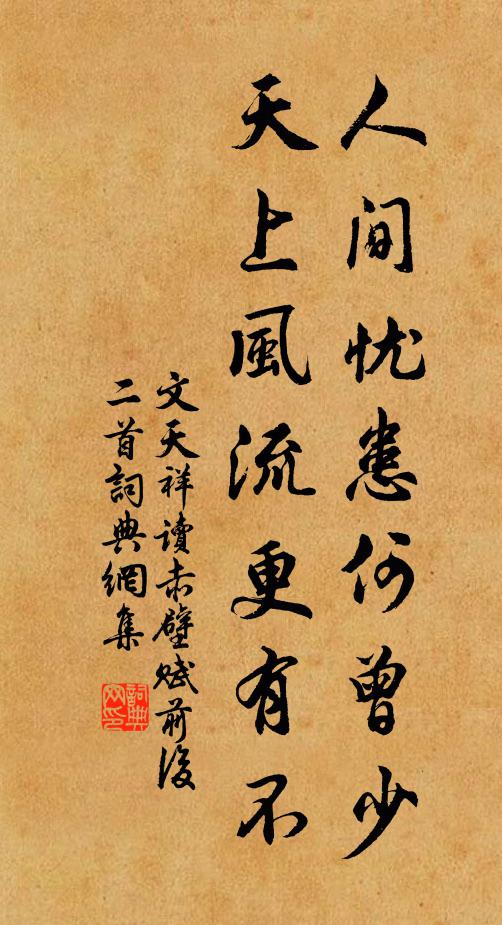 人间忧患何曾少
天上風流更有不
文天祥讀赤壁賦前後
二首詞典網集
詞典
网印